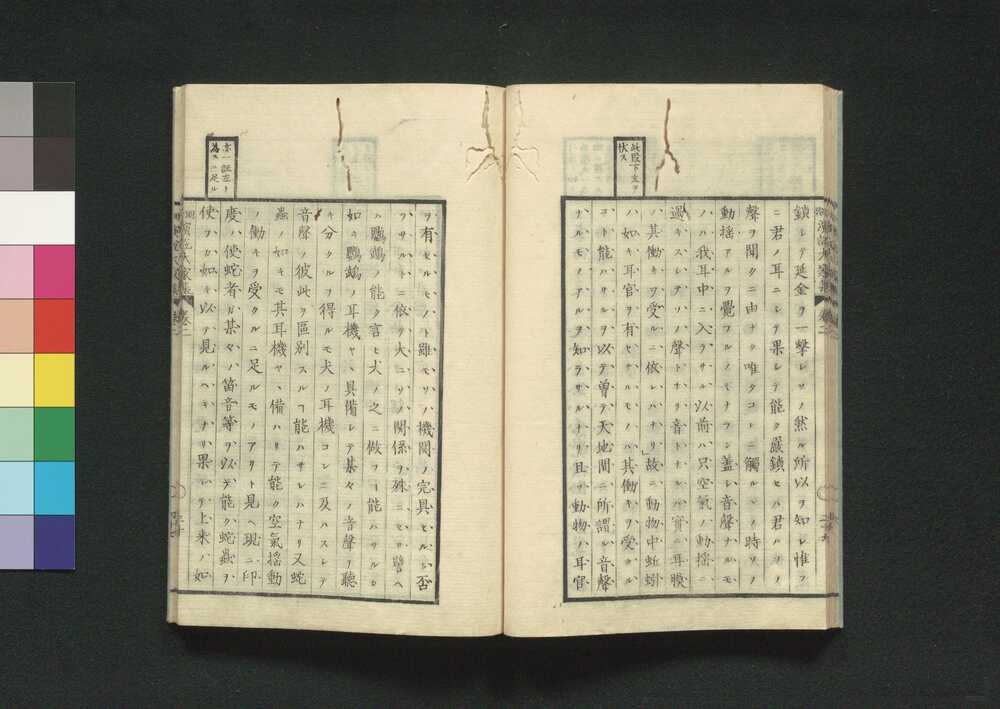 此段下文ヲ
伏ス
鎖シテ延金ヲ一撃シソノ然ル所以ヲ知レ惟フ
ニ君ノ耳ニシテ果シテ能ク嚴鎖セハ君ハソノ
聲ヲ聞クニ由ナク唯タコレニ觸ルヽノ時ソノ
動揺アルヲ覺フルノミナラン蓋シ音聲ナルモ
ノハ我耳中ニ入ラサル以前ハ只空氣ノ動揺ニ
過キスシテソノ聲トナリ音トナルハ實ニ耳膜
ノ其働キヲ受ルニ依レハナリ故ニ動物中蚯蚓
ノ如キ耳官ヲ有セサルモノハ其働キヲ受クル
コト能ハサルヲ以テ曽テ天地間ニ所謂ル音聲
ナルモノアルヲ知ラサルナリ且ツ動物ハ耳官
ヲ有セルモノト雖モソノ機関ノ完具セルト否
ラサルトニ依リ大ニソノ関係ヲ殊ニセリ譬ヘ
ハ鸚鵡ノ能ク言ヒ犬ノ之ニ倣フヿ能ハサルカ
如キ鸚鵡ノ耳機ハ具備シテ某々ノ音聲ヲ聽
キ分クルヲ得ルモ犬ノ耳機コレニ及ハスシテ
音聲ノ彼此ヲ區別スルヿ能ハサレハナリ又蛇
蟲ノ如キモ其耳機ハ備ハリテ能ク空氣揺動
ノ働キヲ受クルニ足ルモノアリト見ヘ現ニ印
度ハ使蛇者ガ某々ノ笛音等ヲ以テ能ク蛇蟲ヲ
使フカ如キ以テ見ルヘキナリ果シテ上来ノ如
亦一証左ト
為スニ足ル